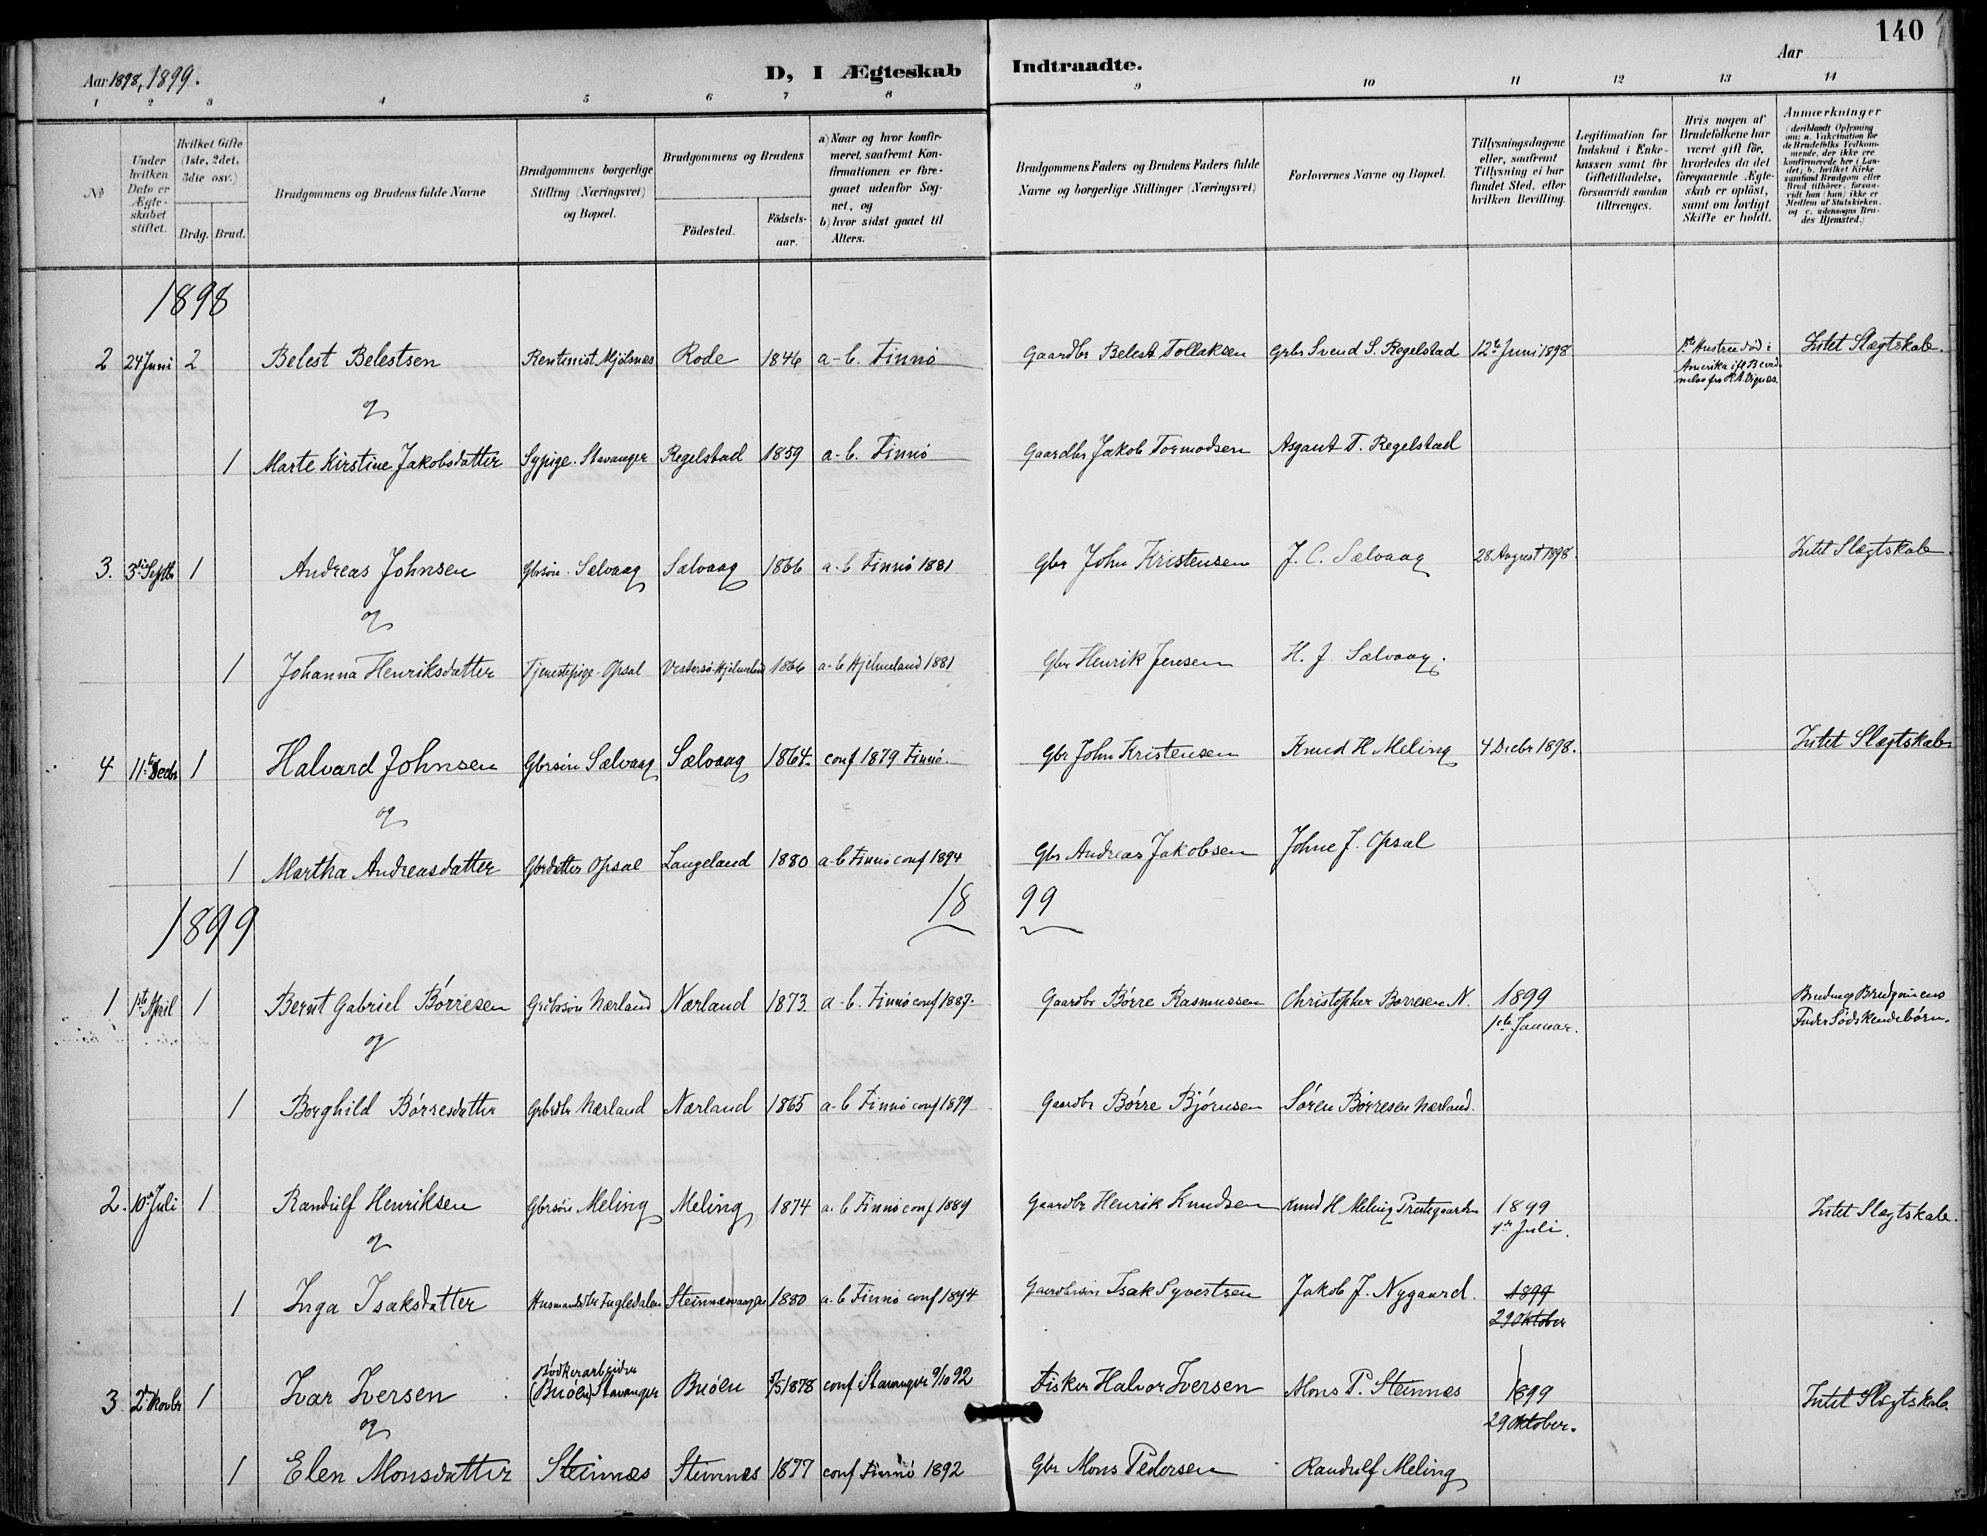 140
Aar 1898, 1899.
D, I Ægteskab Indtraadte.
Aar
1 2 3 4 5 6 7 8 9 10 11 12 13 14
No
Under hvilken Dato er Ægteskabet stiftet.
Hvilket Gifte (1ste, 2det, 3die osv.)
Brdg. Brud.
Brudgommens og Brudens fulde Navne
Brudgommens borgerlige Stilling (Næringsvei) og Bopæl.
Brudgommens og Brudens
Födested. Födsels-aar.
a) Naar og hvor konfirmeret, saafremt Konfirmationen er foregaaet udenfor Sognet, og
b) hvor sidst gaaet til Alters.
Brudgommens Faders og Brudens Faders fulde Navne og borgerlige Stillinger (Næringsvei)
Forlovernes Navne og Bopæl.
Tillysningsdagene eller, saafremt Tillysning ei har fundet Sted, efter hvilken Bevilling.
Legitimation for Indskud i Enkekassen samt for Giftetilladelse, forsaavidt saadan tiltrænges.
Hvis nogen af Brudefolkene har været gift för, hvorledes da det foregaaende Ægteskab er oplöst, samt om lovligt Skifte er holdt.
Anmærkninger
(deriblandt Oplysning om: a. Vakcination for de Brudefolks Vedkommende, der ikke ere konfirmerede her i Landet; b. hvilket Kirkesamfund Brudgom eller Brud tilhörer, forsaavidt han (hun) ikke er Medlem af Statskirken, og c. udensogns Brudes Hjemsted.)
1898
2 24 Juni 2 Belest Belestsen Rentenist Mjölsnæs Rode 1846 a-b. Finnö Gaardbr Belest Tollaksen Grbr Svend S. Regelstad 12te Juni 1898 1ste Hustru död i Amerika ifl Bevidnelse fra K.A. Vignæs Intet Slægtskab.
og
1 Marte Kirstine Jakobsdatter Sypige Stavanger Regelstad 1859 a-b. Finnö Gaardbr Jakob Tormodsen Asgaut T. Regelstad
3. 3die Septb 1 Andreas Johnsen Gbrsön Sælvaag Salvaag 1866 a-b Finnö 1881 Gbr John Kristensen J. C. Salvaag 28 August 1898 Intet Slægtskab
og
1 Johanna Henriksdatter Tjenestepige Opsal Vestersö Hjelmeland 1866 a-b Hjelmeland 1881 Gbr Henrik Jensen H. J Salvaag.
4 11te Decbr 1 Halvard Johnsen Gbrsön Salvaag Sælvaag 1864. conf 1879 Finnö. Gbr John Kristensen Knud H Meling 4 Decbr 1898. Intet Slægtskab
og
1 Martha Andreasdatter Gbrdatter Opsal Langeland 1880 a-b Finnö conf 1894 Gbr Andreas Jakobsen Johne J. Opsal
1899
18 99
1 1ste April 1 Bernt Gabriel Börresen Grbrsön Nærland Nærland 1873. a-b. Finnö conf 1887. Gaardbr Börre Rasmussen Christopher Borresen N. 1899 1ste Januar. Brudens Brudgommens Fader Södskendebörn.
og
1 Borghild Börresdatter Grbrdtr Nærland Nærland 1865 a-b Finnö conf 1879 Gaardbr Börre Björnsen Sören Börresen Nærland.
2. 10de Juli 1 Randulf Henriksen Gbrsön Meling Meling 1874 a-b Finnö conf 1889 Gaardbr Henrik Knudsen Knud H Meling Prestegaarden 1899 9de Juli. Intet Slægtskab.
og
1 Inga Isaksdatter Husmandsdtr Fugledalen Steinnæsvaagen 1880 a-b Finnö conf 1894 Isak Syvertsen Jakob J. Nygaard. 1899 29 Oktober
3. 2den Novbr 1 Ivar Iversen Bödkerarbeider (Buöen) Stavanger Buöen 1878 conf i Stavanger 9/10 92 Fisker Halvor Iversen Mons P. Steinnæs 1899 29 Oktober. Intet Slægtskab.
og
1 Elen Monsdatter Steinnæs Steinnæs 1877 conf Finnö 1892 Gbr Mons Pedersen Randulf Meling